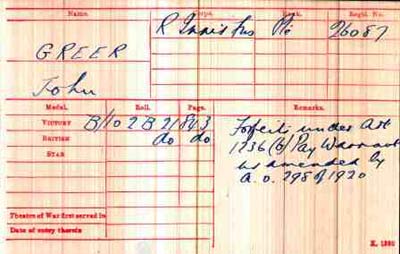 Name. Corps. Rank. Regtl. No.
GREER R Innis Fus Pte 26087
John
Medal. Roll. Page. Remarks.
VICTORY B/102 B 21 843 Forfeits under Art
BRITISH do do 1236 (b) Pay Warrant
STAR as amended by
A.O. 298 of 1920
Theatre of War first served in
Date of entry therein
K. 1380